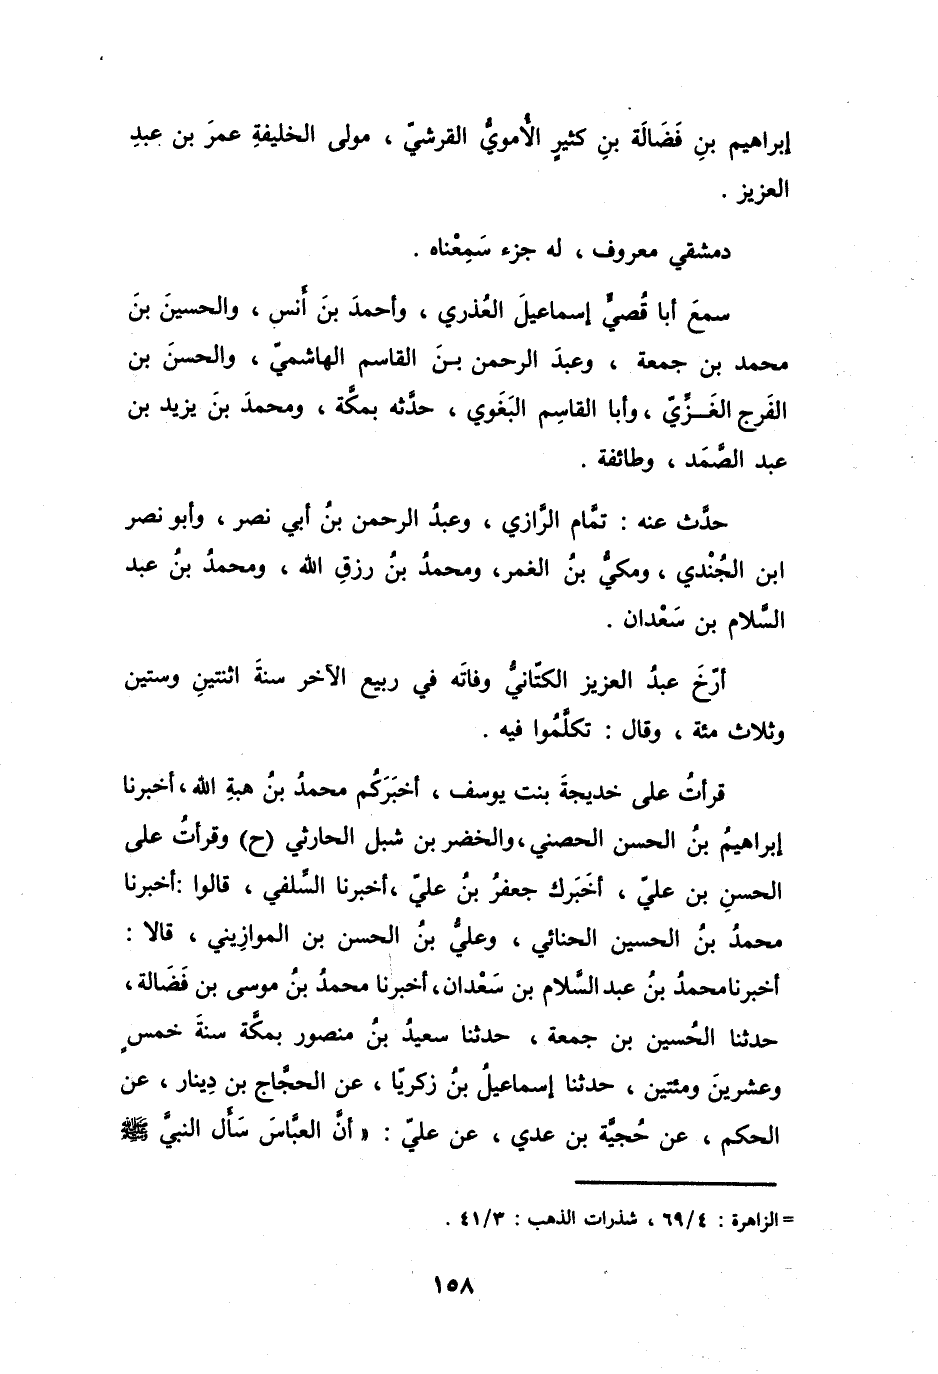 إبراهيم بنِ فَضَالَة بنِ كثيرٍ الأمويُّ القرشيّ ، مولى الخليفةِ عمرَ بن عبدِ
العزيز .
دمشقي معروف ، له جزء سَمِعْناه .
سمعَ أبا قُصيٍّ إسماعيلَ العُذري ، وأحمدَ بنَ أَنس ، والحسينَ بنَ
محمد بن جمعة ، وعبدَ الرحمن بنَ القاسم الهاشميّ ، والحسنَ بن
الفَرج الغَزِّيّ ، وأبا القاسِم البَغَوي ، حدَّثه بمكَّة ، ومحمدَ بنَ يزيد بن
عبد الصَّمَد ، وطائفة .
حدَّث عنه : تمَّام الرَّازي ، وعبدُ الرحمن بنُ أبي نصر ، وأبو نصر
ابن الجُنْدي ، ومكيُّ بنُ الغمر، ومحمدُ بنُ رزقِ الله ، ومحمدُ بنُ عبد
السَّلام بن سَعْدان .
أرّخَ عبدُ العزيز الكتّانيُّ وفاتَه في ربيع الآخر سنةَ اثنتينِ وستين
وثلاث مئة ، وقال : تكلَّمُوا فيه .
قرأتُ على خديجةَ بنت يوسف ، أخبَرَكُم محمدُ بنُ هبةِ الله ، أخبرنا
إبراهيمُ بنُ الحسن الحصني ، والخضر بن شبل الحارثي (ح) وقرأتُ على
الحسنِ بن عليّ ، أخَبَرك جعفرُ بنُ عليّ ، أخبرنا السِّلفي ، قالوا : أخبرنا
محمدُ بنُ الحسين الحنائي ، وعليُّ بنُ الحسن بن الموازِيني ، قالا :
أخبرنا محمدُ بنُ عبد السَّلام بن سَعْدان، أخبرنا محمدُ بنُ موسى بن فَضَالة ،
حدثنا الحُسين بن جمعة ، حدثنا سعيدُ بنُ منصور بمكَّة سنةَ خمسٍ
وعشرينَ ومئتين ، حدثنا إسماعيلُ بنُ زكريّا ، عن الحجَّاج بن دِينار ، عن
الحكم ، عن حُجيَّة بن عدي ، عن عليّ : « أنَّ العبَّاسَ سَأَل النبيَّ ﷺ
= الزاهرة : ٤/ ٦٩ ، شذرات الذهب : ٣/ ٤١ .
١٥٨